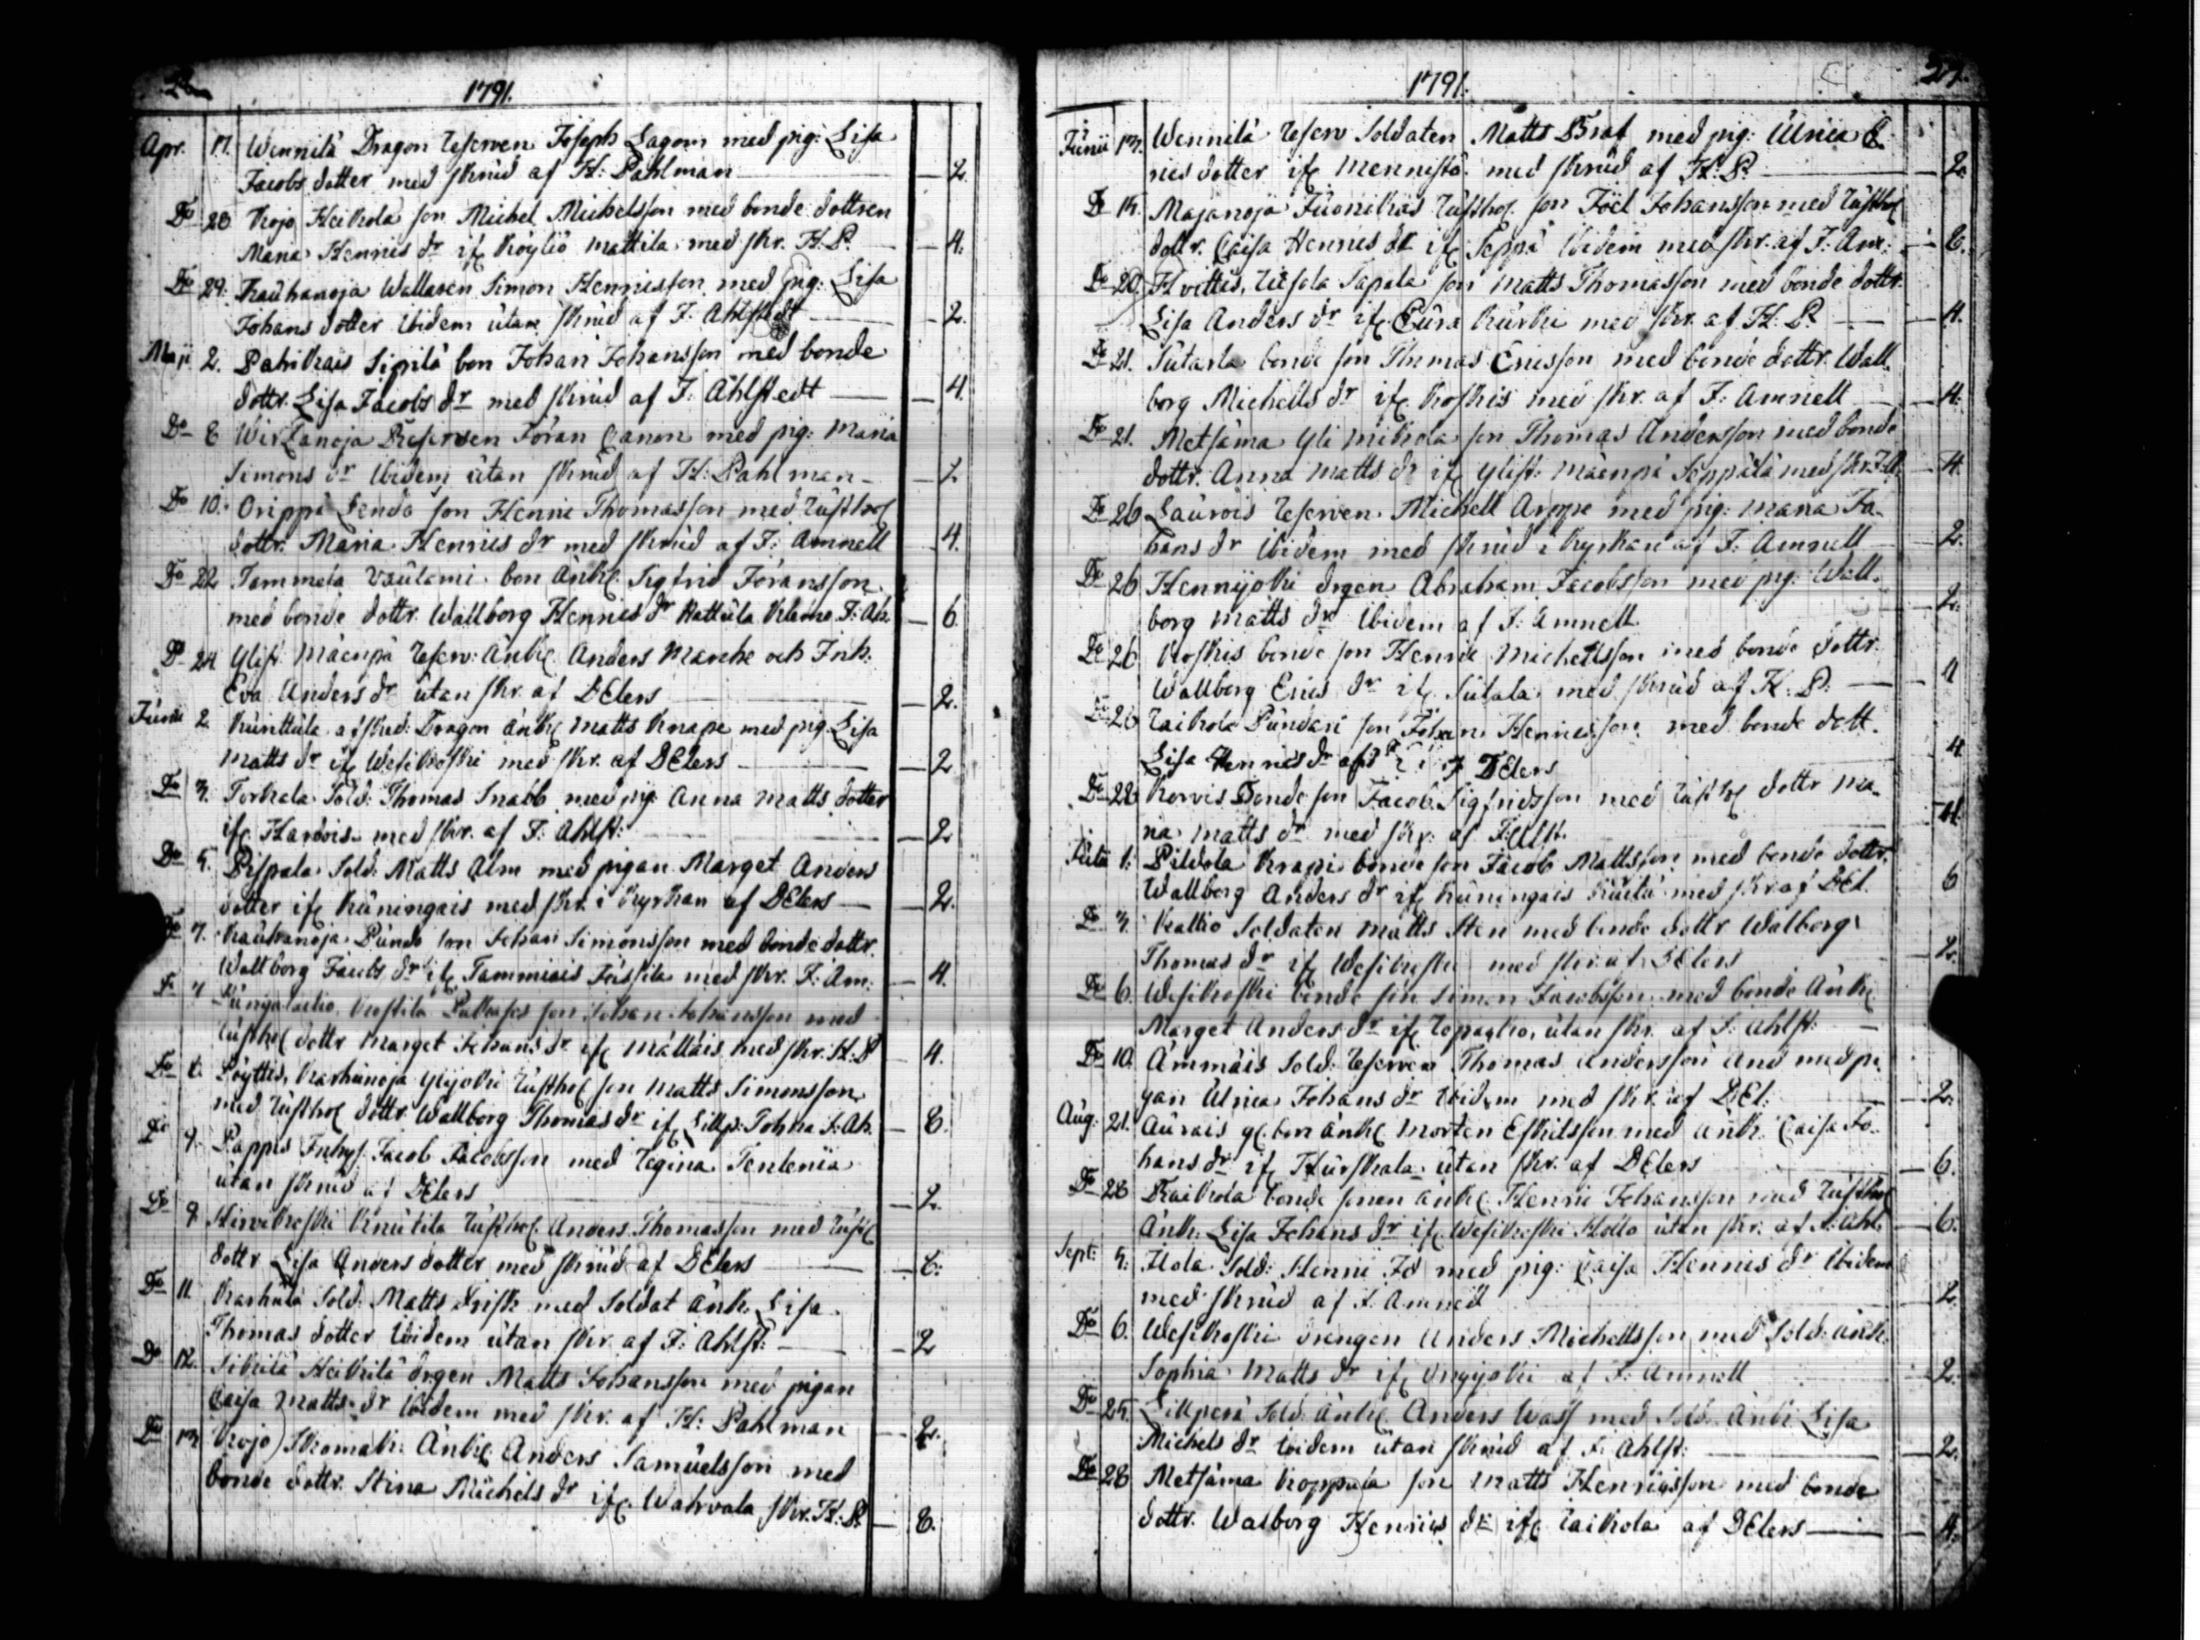 1791.
Apr. 17. Wennilä Dragon Reserven Joseph Lagom med pig: Lisa
Jacobs dotter med skrud af H: Pahlman — 2.
Do 28 Kojo Heikola son Michel Michelsson med bonde dottren
Maria Hennis dr if Köyliö Mattila med skr. H. P. — 4.
Do 29. Rauhanoja Wallaren Simon Hennisson med pig: Lisa
Johans dotter Ibidem utan skrud af J. Ahlstedt — 2.
Maji 2. Pahikais Sipilä bon Johan Johansson med bonde
dottr. Lisa Jacobs dr med skrud af J. Ahlstedt — 4
Do 8 Wirtanoja Reserven Jöran Canon med pig: Maria
Simons dr Ibidem utan skrud af H: Pahlman — 2
Do 10. Orippä son Henric Thomasson med Rusth
dottr. Maria Hennis dr med skrud af J: Amnell — 4.
Do 22 Tammela bon Änkl. Sigfrid Joransson
med bonde dottr Wallborg Hennis dr Mattula — 6
Do 24 Ylist. Mäenpä Reserv: Änkl Anders Manke och Inh:
Eva Anders dr utan skr. af DElers — 2.
Junii 2 Kunttula afsked: Dragon änkl Matts Knape med pig Lisa
Matts dr if Wesikoski med skr. af DElers — 2
Do 3. Torkala Sold: Thomas Snabb med pig: Anna Matts dotter
if med skr. af J: Ahlst: — 2
Do 5. Pispala Sold: Matts Alm med pigan Marget Anders
dotter if Kuningais med skr. i kyrkan af DElers — 2.
Do 7. Rauhanoja Pundo son Johan Simonsson med bonde dottr.
Wallborg Jacobs dr if Tammiais Jussila med skr. J: Am: — 4.
Do 7 Pungalaitio, Kostila son Johan Johansson med
Rusth dottr Marget Johans dr if med skr. H: P — 4.
Do 8. Pöyttis, Karhunoja Ylijoki Rusth son Matts Simonsson
med Rusth dottr Wallborg Thomas dr if J: Ah. — 8.
Do 9. Pappis Inhys. Jacob Jacobsson med Regina
utan skrud af DElers — 2.
Do 9 Hirvikoski Knutila Rusth. Anders Thomasson med
dottr Lisa Anders dotter med skrud af DElers — 8:
Do 11. Karhula Sold: Matts Frisk med Soldat änk. Lisa
Thomas dotter Ibidem utan skr. af J: Ahlst: — 2
Do 12. Sikilä Heikilä drgen Matts Johansson med pigan
Caisa Matts dr Ibidem med skr. af H: Pahlman — 2.
Do 13 Kojo Skomak: Änkl. Anders Samuelsson med
bonde dottr. Stina Michels dr if. Wahvala skr. H: P. — 8.
1791. 27.
Junii 13. Wennilä Reserv Soldaten Matts Braf med pig: Ulrica
dotter if Mennistö med skrud af H: P. — 2.
Do 15. Majanoja Juonikas Rusth. son Joel Johansson med Rusth
dottr. Caisa Hennis dr if Seppä Ibidem med skr. af J: Am: — 8.
Do 20. Hvittis, Sapala son Matts Thomasson med bonde dottr.
Lisa Anders dr if Eura Kurki med skr. af H. P. — 4.
Do 21. Sutarla bonde son Thomas Ericsson med bonde dottr. Wall-
borg Michells dr if Koskis med skr. af J: Amnell — 4:
Do 21. Metsäma Yli Mikola son Thomas Andersson med bonde
dottr. Anna Matts dr if Ylist: Mäenpä Seppälä med skr. — 4.
Do 26 Laurois Reserven Michell Arppe med pig: Maria Jo-
hans dr Ibidem med skrud i kyrkan af J: Amnell — 2.
Do 26 Hennijoki drgen Abraham Jacobsson med pig. Wall-
borg Matts dr Ibidem af J: Amnell. — 2.
Do 26 Koskis bonde son Henric Michellsson med bonde dottr.
Wallborg Erics dr if Sutala med skrud af H: P: — 4
Do 26 Raikola Pundari son Johan Henricsson med bonde dott.
Lisa Hennis dr DElers — 4
Do 28 Korvis bonde son Jacob Sigfridsson med Rusth dottr Ma-
ria Matts dr med skr: af J: Ahlst. — 4.
Julii 1. Pildola Krapi bonde son Jacob Mattsson med bonde dottr.
Wallborg Anders dr if Kuningais med skr af DEl. — 6
Do 3. Kallio Soldaten Matts Sten med bonde dottr Walborg
Thomas dr if Wesikoski med skr. af DElers — 2.
Do 6. Wesikoski bonde son Simon Jacobsson med bonde Änk
Marget Anders dr if utan skr. af J: Ahlst: —
Do 10. Ämmäis Sold: Reserven Thomas Andersson And med pi-
gan Ulrica Johans dr Ibidem med skr. af DEl: — 2.
Aug: 21. Aurais bon änkl Morten Eskilsson med änk: Caisa Jo-
hans dr if Hurskala utan skr. af DElers — 6.
Do 28 Raikola bonde sonen änkl Henric Johansson med Rusth
Änk: Lisa Johans dr if Wesikoski Hollo utan skr. af J. Ahl. — 6.
Sept: 5. Ilola Sold: Henric med pig: Caisa Hennis dr Ibidem
med skrud af J. Amnell — 2
Do 6. Wesikoski drengen Anders Michellsson med Sold: änk:
Sophia Matts dr if af J: Amnell — 2.
Do 25. Lillperä Sold: änkl. Anders Wass med Sold. Änk: Lisa
Michels dr Ibidem utan skrud af J: Ahlst: — 2.
Do 28 Metsäma Koppala son Matts Henricsson med bonde
dottr. Walborg Hennis dr if Raikola af DElers — 4.